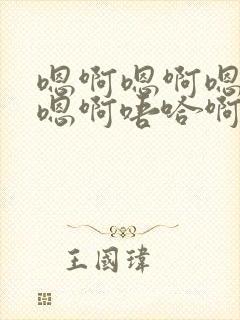 嗯啊嗯啊嗯
嗯啊唔哈啊
王國瑋